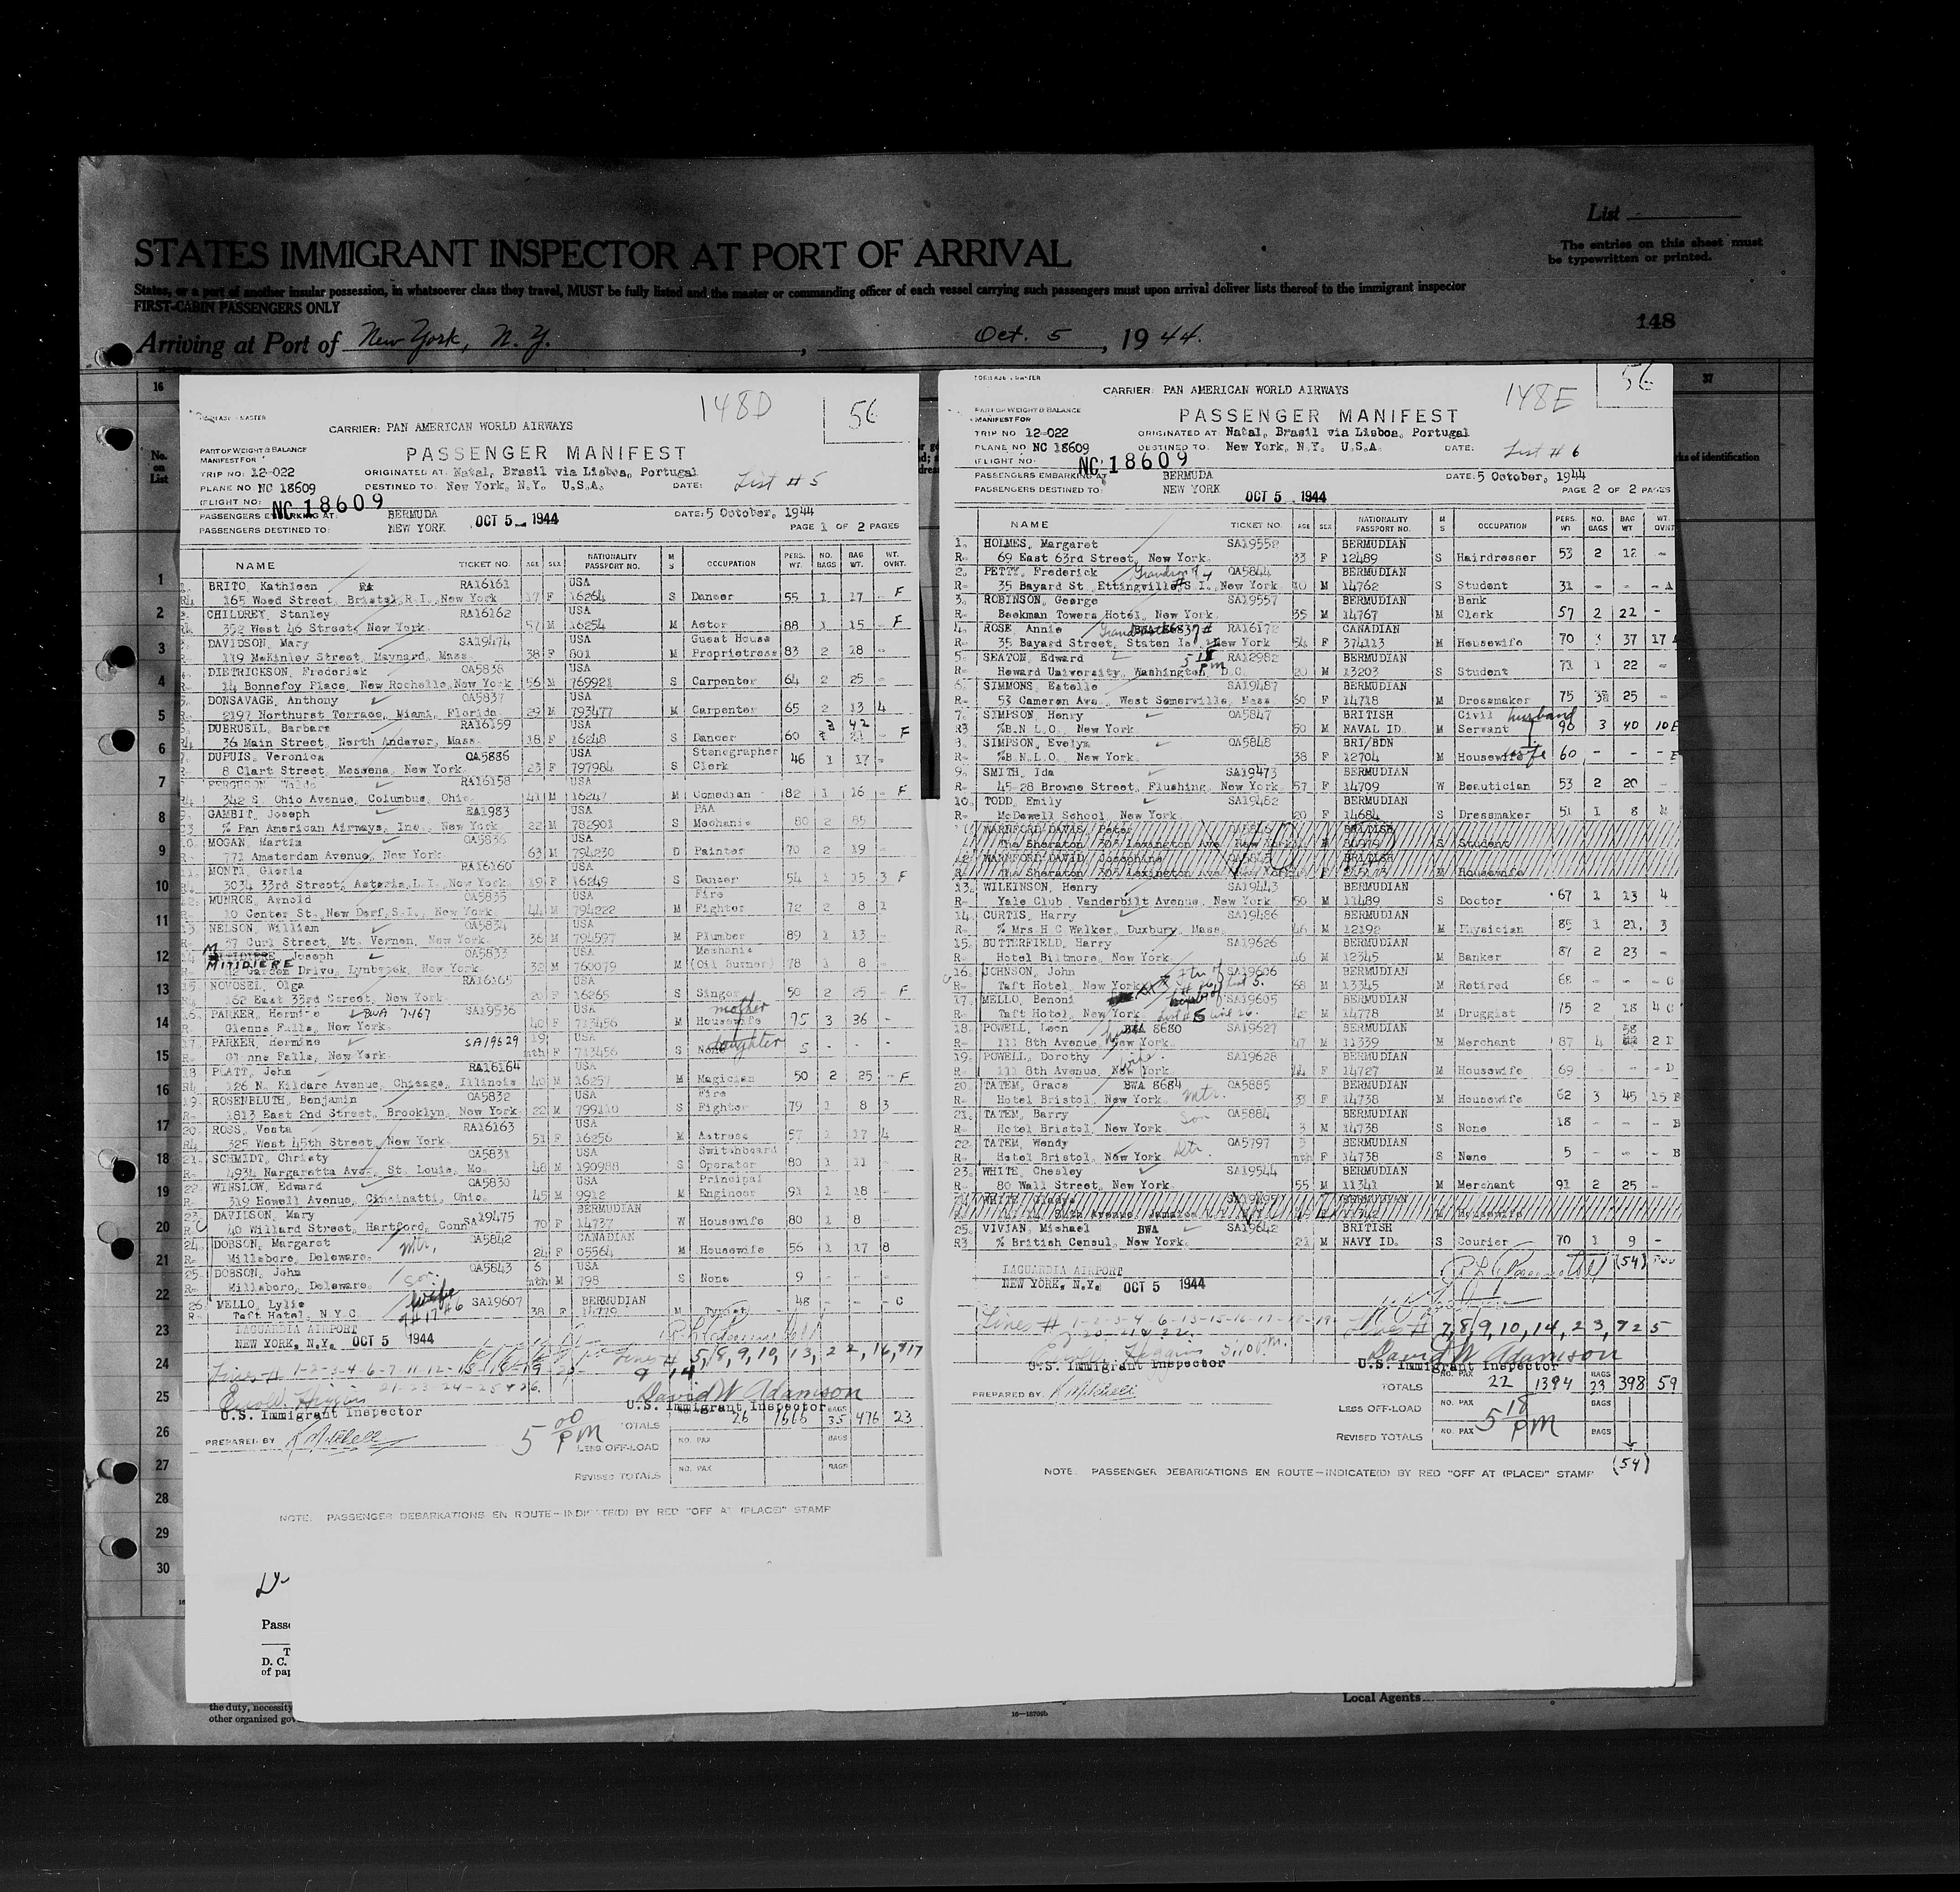 List
STATES IMMIGRANT INSPECTOR AT PORT OF ARRIVAL
The entries on this sheet must
be typewritten or printed.
States, or a part of another insular possession, in whatsoever class they travel, MUST be fully listed and the master or commanding officer of each vessel carrying such passengers must upon arrival deliver lists thereof to the immigrant inspector
FIRST-CABIN PASSENGERS ONLY
148
Arriving at Port of New York, N. Y., Oct. 5, 1944.
16
37
No.
on
List
148D
56
CARRIER: PAN AMERICAN WORLD AIRWAYS
PART OF WEIGHT & BALANCE
MANIFEST FOR
PASSENGER MANIFEST
TRIP NO: 12-022 ORIGINATED AT: Natal, Brasil via Lisboa, Portugal
PLANE NO NC 18609 DESTINED TO: New York, N.Y. U.S.A. DATE: List # 5
(FLIGHT NO: NC 18609
PASSENGERS EMBARKING AT: BERMUDA DATE: 5 October, 1944
PASSENGERS DESTINED TO: NEW YORK OCT 5 1944 PAGE 1 OF 2 PAGES
NAME TICKET NO. AGE SEX NATIONALITY PASSPORT NO. M S OCCUPATION PERS. WT. NO. BAGS BAG WT. WT. OVNT.
BRITO, Kathleen RA16161 USA
R4 165 Wood Street, Bristol, R.I., New York 17 F 16264 S Dancer 55 1 17 - F
CHILDREY, Stanley RA16162 USA
R4 352 West 46 Street, New York 57 M 16254 M Actor 88 1 15 - F
DAVIDSON, Mary SA19474 USA Guest House
R- 179 McKinley Street, Maynard, Mass. 38 F 801 M Proprietress 83 2 28 -
DIETRICKSON, Frederick OA5838 USA
R- 14 Bonnefoy Place, New Rochelle, New York 56 M 769921 S Carpenter 64 2 25 -
DONSAVAGE, Anthony OA5837 USA
R- 2197 Northurst Terrace, Miami, Florida 29 M 793477 M Carpenter 65 2 13 4
DUBRUEIL, Barbara RA16159 USA
R4 36 Main Street, North Andover, Mass. 18 F 16248 S Dancer 60 3 42 - F
DUPUIS, Veronica OA5886 USA Stenographer
R- 8 Clart Street, Messena, New York 23 F 797984 S Clerk 46 1 17 -
FERGUSON, RA16158 USA
R4 342 S. Ohio Avenue, Columbus, Ohio. 41 M 16247 M Comedian 82 1 16 - F
GAMBIT, Joseph RA1983 PAA USA
C3 % Pan American Airways, Inc., New York 22 M 782901 S Mechanic 80 2 85
MOGAN, Martin OA5836 USA
R- 771 Amsterdam Avenue, New York 63 M 794230 D Painter 70 2 19 -
MONTI, Gloria RA16160 USA
3034 33rd Street, Astoria, L.I., New York 19 F 16249 S Dancer 54 1 15 3 F
MUNROE, Arnold OA5835 USA Fire
R- 10 Center St., New Dorf, S.I., New York 44 M 794222 M Fighter 72 2 8 1
13. NELSON, William OA5834 USA
R- 37 Curl Street, Mt. Vernon, New York 36 M 794597 M Plumber 89 1 13 -
14. MITIDIERE, Joseph OA5833 USA Mechanic
R- Garden Drive, Lynbrook, New York 32 M 760079 M (Oil Burner) 78 1 8 -
15. NOVOSEL, Olga RA16165 USA
R4 162 East 33rd Street, New York 20 F 16265 S Singer 50 2 25 - F
16. PARKER, Hermine BWA 7467 SA19536 USA mother
R- Glenns Falls, New York. 40 F 713456 M Housewife 75 3 36 -
17. PARKER, Hermine SA19629 19 USA daughter
R- Glenns Falls, New York mth F 713456 S None 5 - - -
18 PLATT, John RA16164 USA
R4 126 N. Kildare Avenue, Chicago, Illinois 40 M 16257 M Magician 50 2 25 - F
19. ROSENBLUTH, Benjamin OA5832 USA Fire
R- 1813 East 2nd Street, Brooklyn, New York 22 M 799110 S Fighter 79 1 8 3
20. ROSS, Vesta RA16163 USA
R4 325 West 45th Street, New York 51 F 16256 M Actress 57 1 17 4
21. SCHMIDT, Christy OA5831 USA Switchboard
R- 4934 Nargaretta Ave., St. Louis, Mo. 48 M 190988 S Operator 80 1 11
22. WINSLOW, Edward OA5830 USA Principal
R- 319 Howell Avenue, Cincinatti, Ohio. 45 M 9912 M Engineer 91 1 18 -
23. DAVIDSON, Mary SA19475 BERMUDIAN
R- 40 Willard Street, Hartford, Conn 70 F 14737 W Housewife 80 1 8 -
24. DOBSON, Margaret Mtr. OA5842 CANADIAN
R- Millsboro, Deleware. 24 F 05564 M Housewife 56 1 17 8
25. DOBSON, John Son OA5843 6 USA
R- Millsboro, Deleware. mth M 798 S None 9 - - -
26. MELLO, Lylie wife SA19607 BERMUDIAN
R- Taft Hotel, N.Y.C. #17 #6 38 F 14779 M Typist 48 - - C
LAGUARDIA AIRPORT
NEW YORK, N.Y. OCT 5 1944
Lines # 1-2-3-4-6-7-11-12-15-18-19-20-
21-23-24-25 & 26.
Lines # 5, 8, 9, 10, 13, 22, 16, & 17
& 14
David W Adamson
U.S. Immigrant Inspector U.S. Immigrant Inspector
TOTALS 26 1666 BAGS 35 476 23
PREPARED BY
5 00 PM
LESS OFF-LOAD NO. PAX BAGS
REVISED TOTALS NO. PAX BAGS
NOTE: PASSENGER DEBARKATIONS EN ROUTE-INDICATE(D) BY RED "OFF AT (PLACE)" STAMP
1
2
3
4
5
6
7
8
9
10
11
12
13
14
15
16
17
18
19
20
21
22
23
24
25
26
27
28
29
30
148E
56
CARRIER: PAN AMERICAN WORLD AIRWAYS
PART OF WEIGHT & BALANCE
MANIFEST FOR
PASSENGER MANIFEST
TRIP NO 12-022 ORIGINATED AT: Natal, Brasil via Lisboa, Portugal
PLANE NO. NC 18609 DESTINED TO: New York, N.Y. U.S.A. DATE: List # 6
(FLIGHT NO: NC 18609
PASSENGERS EMBARKING AT BERMUDA DATE: 5 October, 1944
PASSENGERS DESTINED TO: NEW YORK OCT 5 1944 PAGE 2 OF 2 PAGES
NAME TICKET NO. AGE SEX NATIONALITY PASSPORT NO. M S OCCUPATION PERS. WT NO. BAGS BAG WT WT. OVNT
1. HOLMES, Margaret SA19552 BERMUDIAN
R- 69 East 63rd Street, New York 33 F 12489 S Hairdresser 53 2 12 -
2. PETTY, Frederick Grandson # 4 OA5844 BERMUDIAN
R- 35 Bayard St. Ettingville, S.I., New York 10 M 14762 S Student 31 - - -
3. ROBINSON, George SA19557 BERMUDIAN Bank
R- Beekman Towers Hotel, New York 35 M 14767 M Clerk 57 2 22 -
4. ROSE, Annie RA16172 CANADIAN
R- 35 Bayard Street, Staten Is., New York 54 F 374113 M Housewife 70 3 37 17
5. SEATON, Edward 5 18 pm RA12982 BERMUDIAN
R- Howard University, Washington, D.C. 20 M 13203 S Student 71 1 22 -
6. SIMMONS, Estelle SA19487 BERMUDIAN
R- 53 Cameron Ave., West Somerville, Mass 60 F 14718 M Dressmaker 75 25 -
7. SIMPSON, Henry OA5847 BRITISH Civil husband
R3 %B.N.L.O., New York 50 M NAVAL ID. M Servant 96 3 40 10 E
8. SIMPSON, Evelyn OA5848 BRI/BDN
R- %B.N.L.O., New York. 38 F 12704 M Housewife wife 60 - - - E
9. SMITH, Ida SA19473 BERMUDIAN
R- 45-28 Browne Street, Flushing, New York 57 F 14709 W Beautician 53 2 20 -
10. TODD, Emily SA19482 BERMUDIAN
R- McDowell School, New York 20 F 14684 S Dressmaker 51 1 8
WARNFORD-DAVIS, Peter BRITISH
The Sheraton, 303 Lexington Ave, New York S Student
WARNFORD-DAVID, Josephine BRITISH
The Sheraton, 303 Lexington Ave, New York M Housewife
13. WILKINSON, Henry SA19443 BERMUDIAN
R- Yale Club, Vanderbilt Avenue, New York 50 M 11489 S Doctor 67 1 13 4
14. CURTIS, Harry SA19486 BERMUDIAN
R- % Mrs H C Walker, Duxbury, Mass. 46 M 12192 M Physician 85 1 21 3
15. BUTTERFIELD, Harry SA19626 BERMUDIAN
R- Hotel Biltmore, New York 46 M 12345 M Banker 87 2 23 -
16. JOHNSON, John SA19606 BERMUDIAN
R- Taft Hotel, New York 68 M 13345 M Retired 68 - - - C
17. MELLO, Benoni SA19605 BERMUDIAN
R- Taft Hotel, New York list #5 line 26. 42 M 14778 M Druggist 75 2 18 4 C
18. POWELL, Leon BWA 8680 SA19627 BERMUDIAN 58
R- 111 8th Avenue, New York. 47 M 11339 M Merchant 87 4 2 D
19. POWELL, Dorothy wife. SA19628 BERMUDIAN
R- 111 8th Avenue, New York 44 F 14727 M Housewife 69 - - - D
20. TATEM, Grace BWA 8684 OA5885 BERMUDIAN
R- Hotel Bristol, New York. Mtr. 33 F 14738 M Housewife 62 3 45 15 B
21. TATEM, Barry Son OA5884 BERMUDIAN
R- Hotel Bristol, New York 3 M 14738 S None 18 - - - B
22. TATEM, Wendy OA5797 BERMUDIAN
R- Hotel Bristol, New York Dtr. mth F 14738 S None 5 - - - B
23. WHITE, Chesley SA19544 BERMUDIAN
R- 80 Wall Street, New York 55 M 11341 M Merchant 91 2 25 -
WHITE, Gladys BERMUDIAN
84th Avenue, Jamaica M Housewife
25. VIVIAN, Michael BWA SA19642 BRITISH
R3 % British Consul, New York 21 M NAVY ID. S Courier 70 1 9 -
(54)
LAGUARDIA AIRPORT
NEW YORK, N.Y. OCT 5 1944
Lines # 1-2-3-4-6-13-15-16-17-18-19-
20-21 & 22. 5:10 P.M.
Lines # 7, 8, 9, 10, 14, 23, & 25
David W Adamson
U.S. Immigrant Inspector U.S. Immigrant Inspector
PREPARED BY
TOTALS NO. PAX 22 1394 BAGS 23 398 59
LESS OFF-LOAD NO. PAX BAGS
5 18 PM
REVISED TOTALS NO. PAX BAGS
(54)
NOTE: PASSENGER DEBARKATIONS EN ROUTE-INDICATE(D) BY RED "OFF AT (PLACE)" STAMP
D. C.
of pap
the duty, necessity
other organized gov
Local Agents
16-18709b